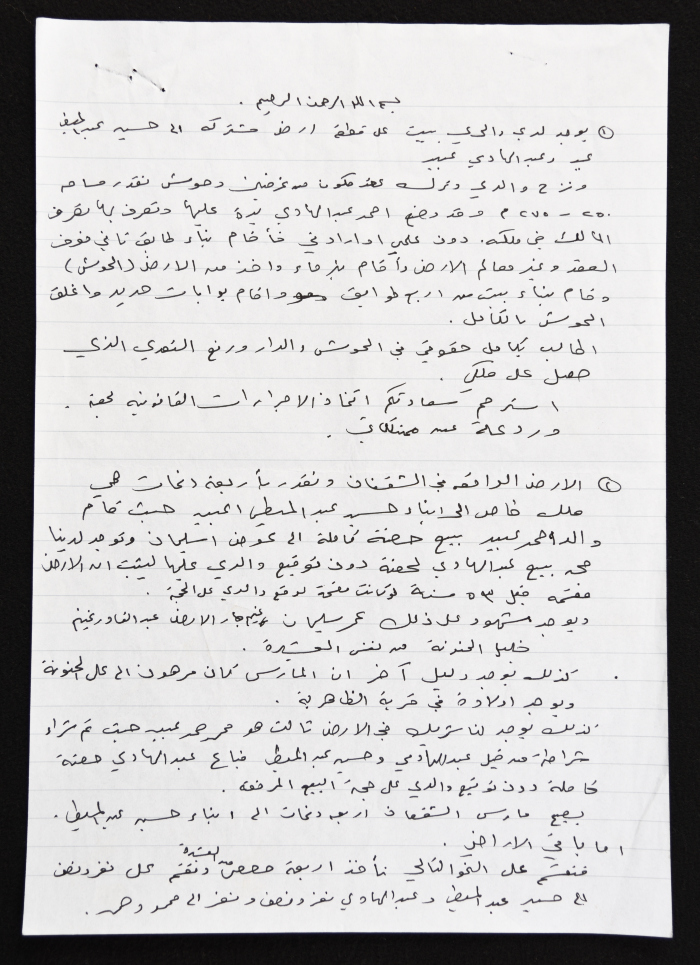 بسم الله الرحمن الرحيم .
١ يوجد لدي والدي بيت على قطعة ارض مشتركه الى حسين عبد المعطي
عبيد وعبد الهادي عبيد
ونزح والدي وترك عقد مكون من غرفتين وحوش تقدر مساحه
٢٥٠ - ٢٧٥ م وقد وضع احمد عبد الهادي يده عليها وتصرف بها تصرف
المالك في ملكه. دون علمي او ارادتي فأقام بناء طابق ثاني فوق
العقد وغير معالم الارض وأقام بئر ماء واخذ من الارض (الحوش)
وقام بناء بيت من اربع طوابق واقام بوابات حديد واغلق
الحوش بالكامل .
اطالب بكامل حقوقي في الحوش والدار ورفع التعدي الذي
حصل على ملكي .
استرحم سعادتكم اتخاذ الاجراءات القانونيه لحقه .
وردعه عن ممتلكاتي .
٢ الارض الواقعه في الشقفان وتقدر بأربعة دنمات هي
ملك خاص الى ابناء حسين عبد المعطي عبيد حيث قام
والد محمد عبيد ببيع حصته كاملة الى عوض اسليمان وتوجد لدينا
حجه ببيع عبد الهادي لحصته دون توقيع والدي عليها ليثبت ان الارض
مقسمه قبل ٥٣ سنة لو كانت مقسمة لوقع والدي على الحجة .
ويوجد شهود على ذلك عمر سليمان غنيم جار الارض عبد القادر غنيم
خليل الحنونة من نفس العشيرة .
. كذلك يوجد دليل آخر ان المارس كان مرهون الى علي الحنونة
ويوجد اولادة في قرية الظاهرية .
كذلك يوجد لنا شريك في الارض ثالث هو محمد عبيد حيث تم شراء
من قبل عبد الهادي وحسين عبد المعطي فباع عبد الهادي حصته
كاملة دون توقيع والدي على حجة البيع المرفقه .
يصبح مارس الشقفان اربعه دنمات الى ابناء حسين عبد المعطي .
اما باقي الاراضي .
فتقسم على النحو التالي نأخذ اربعة حصص من العشيرة وتقسم على نفر ونصف
الى حسين عبد المعطي وعبد الهادي نفر ونصف ونفر الى محمود